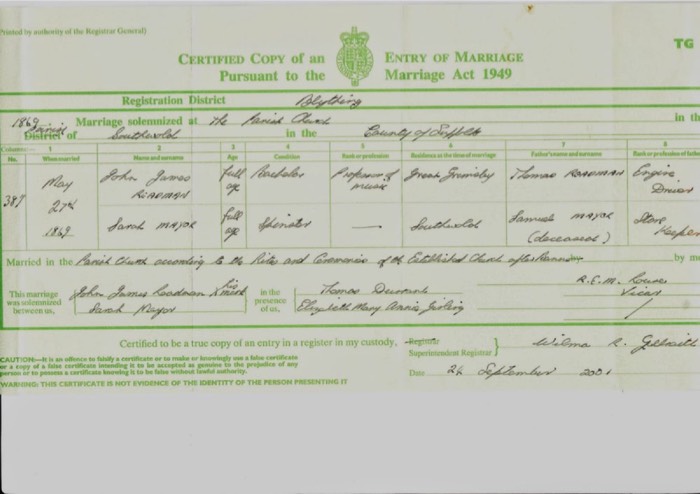 Printed by authority of the Registrar General)
TG
CERTIFIED COPY of an ENTRY OF MARRIAGE
Pursuant to the Marriage Act 1949
Registration District Blything
1869 Marriage solemnized at The Parish Church in th
District of Southwold in the County of Suffolk
Columns:— 1 2 3 4 5 6 7 8
No. When married Name and surname Age Condition Rank or profession Residence at the time of marriage Father's name and surname Rank or profession of fathe
387 May 27th 1869 John James ROADMAN full age Bachelor Professor of music Great Grimsby Thomas ROADMAN Engine Driver
Sarah MAYOR full age Spinster — Southwold Samuel MAYOR (deceased) Store Keeper
Married in the Parish Church according to the Rites and Ceremonies of the Established Church after Banns by me
R.E.M. Vicar
This marriage was solemnized between us, John James Roadman X his mark in the presence of us, Thomas Durrant
Sarah Mayor Elizabeth Mary Annis
Certified to be a true copy of an entry in a register in my custody. Registrar
Superintendent Registrar } Wilma R. Galbraith
Date 24 September 2001
CAUTION:—It is an offence to falsify a certificate or to make or knowingly use a false certificate
or a copy of a false certificate intending it to be accepted as genuine to the prejudice of any
person or to possess a certificate knowing it to be false without lawful authority.
WARNING: THIS CERTIFICATE IS NOT EVIDENCE OF THE IDENTITY OF THE PERSON PRESENTING IT